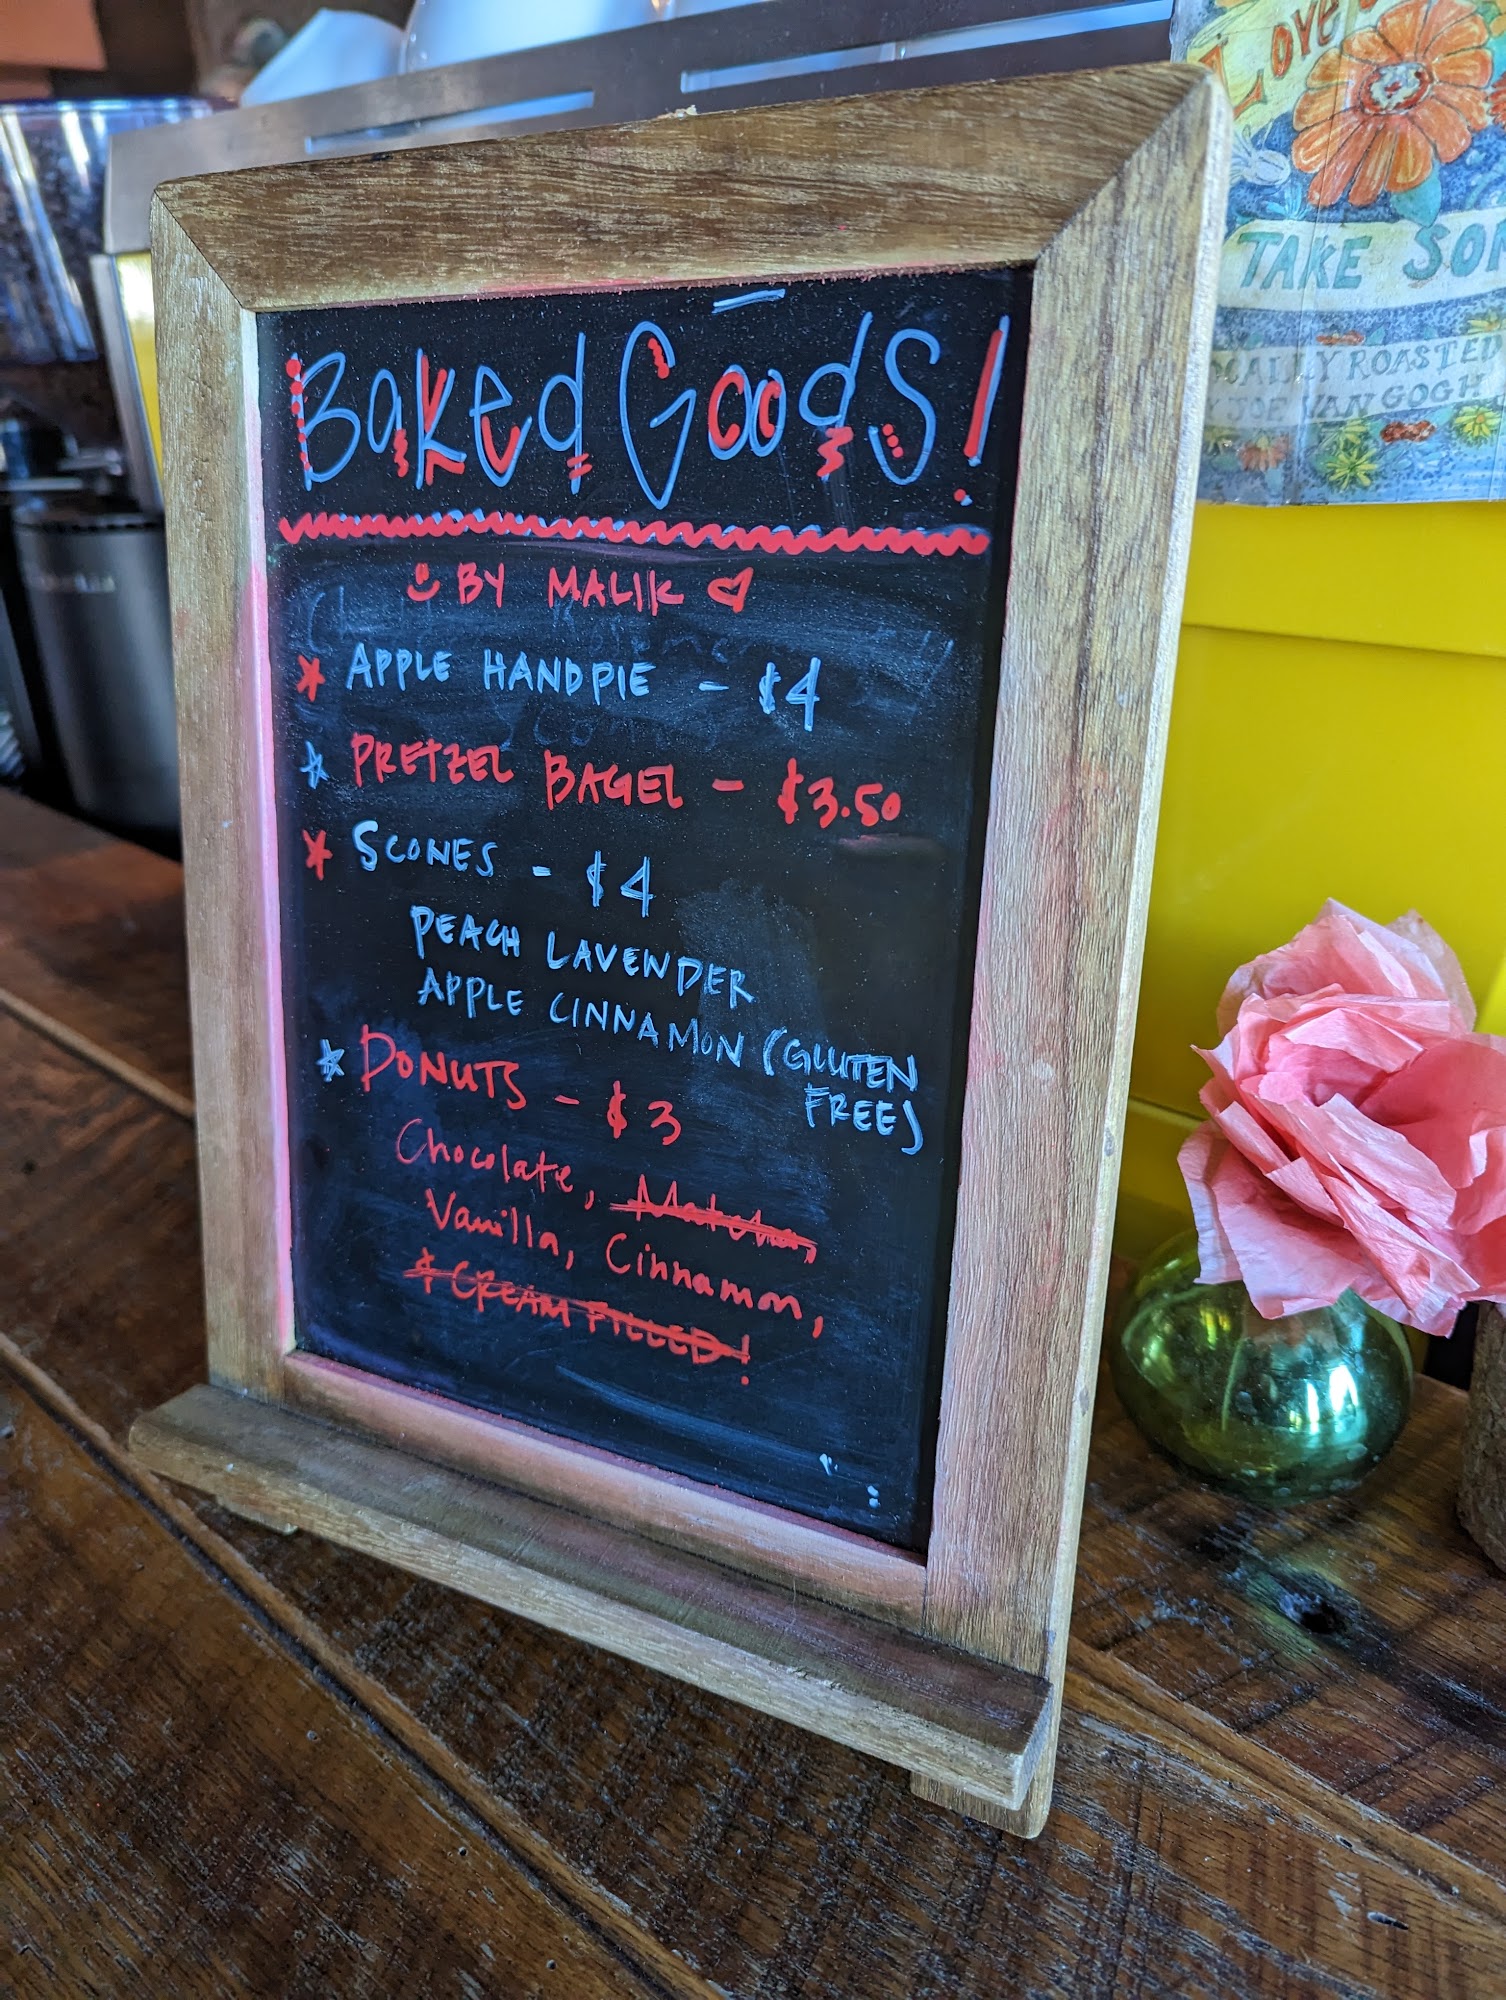 Baked Goods!
BY MALIK
APPLE HANDPIE - $4
PRETZEL BAGEL - $3.50
SCONES - $4
PEACH LAVENDER
APPLE CINNAMON (GLUTEN
FREE)
DONUTS - $3
Chocolate, Matcha,
Vanilla, Cinnamon,
& CREAM FILLED!
LOVE
TAKE SOM
CALLY ROASTED
JOE VAN GOGH